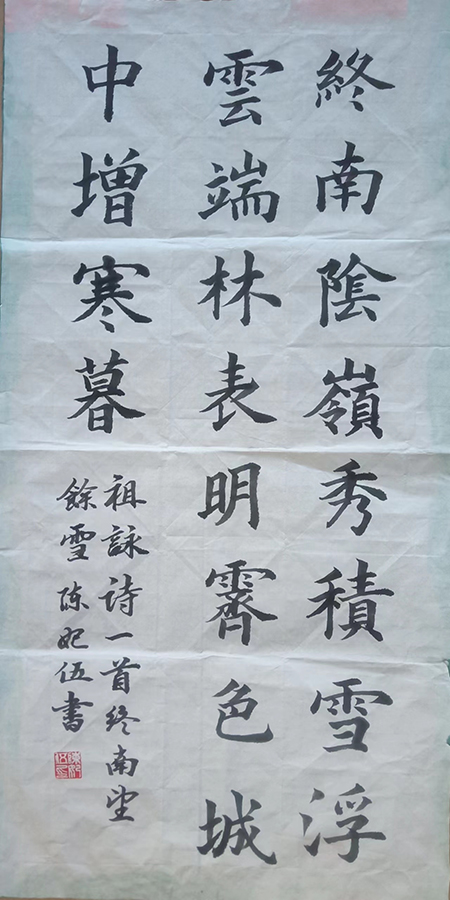 終南陰嶺秀積雪浮
雲端林表明霽色城
中增寒暮
祖詠诗一首终南望
餘雪 陈妃伍書